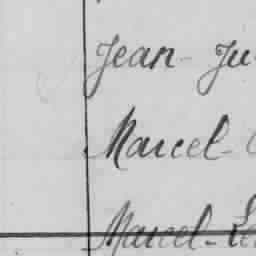 Jean-Ju
Marcel-
Marcel-Le